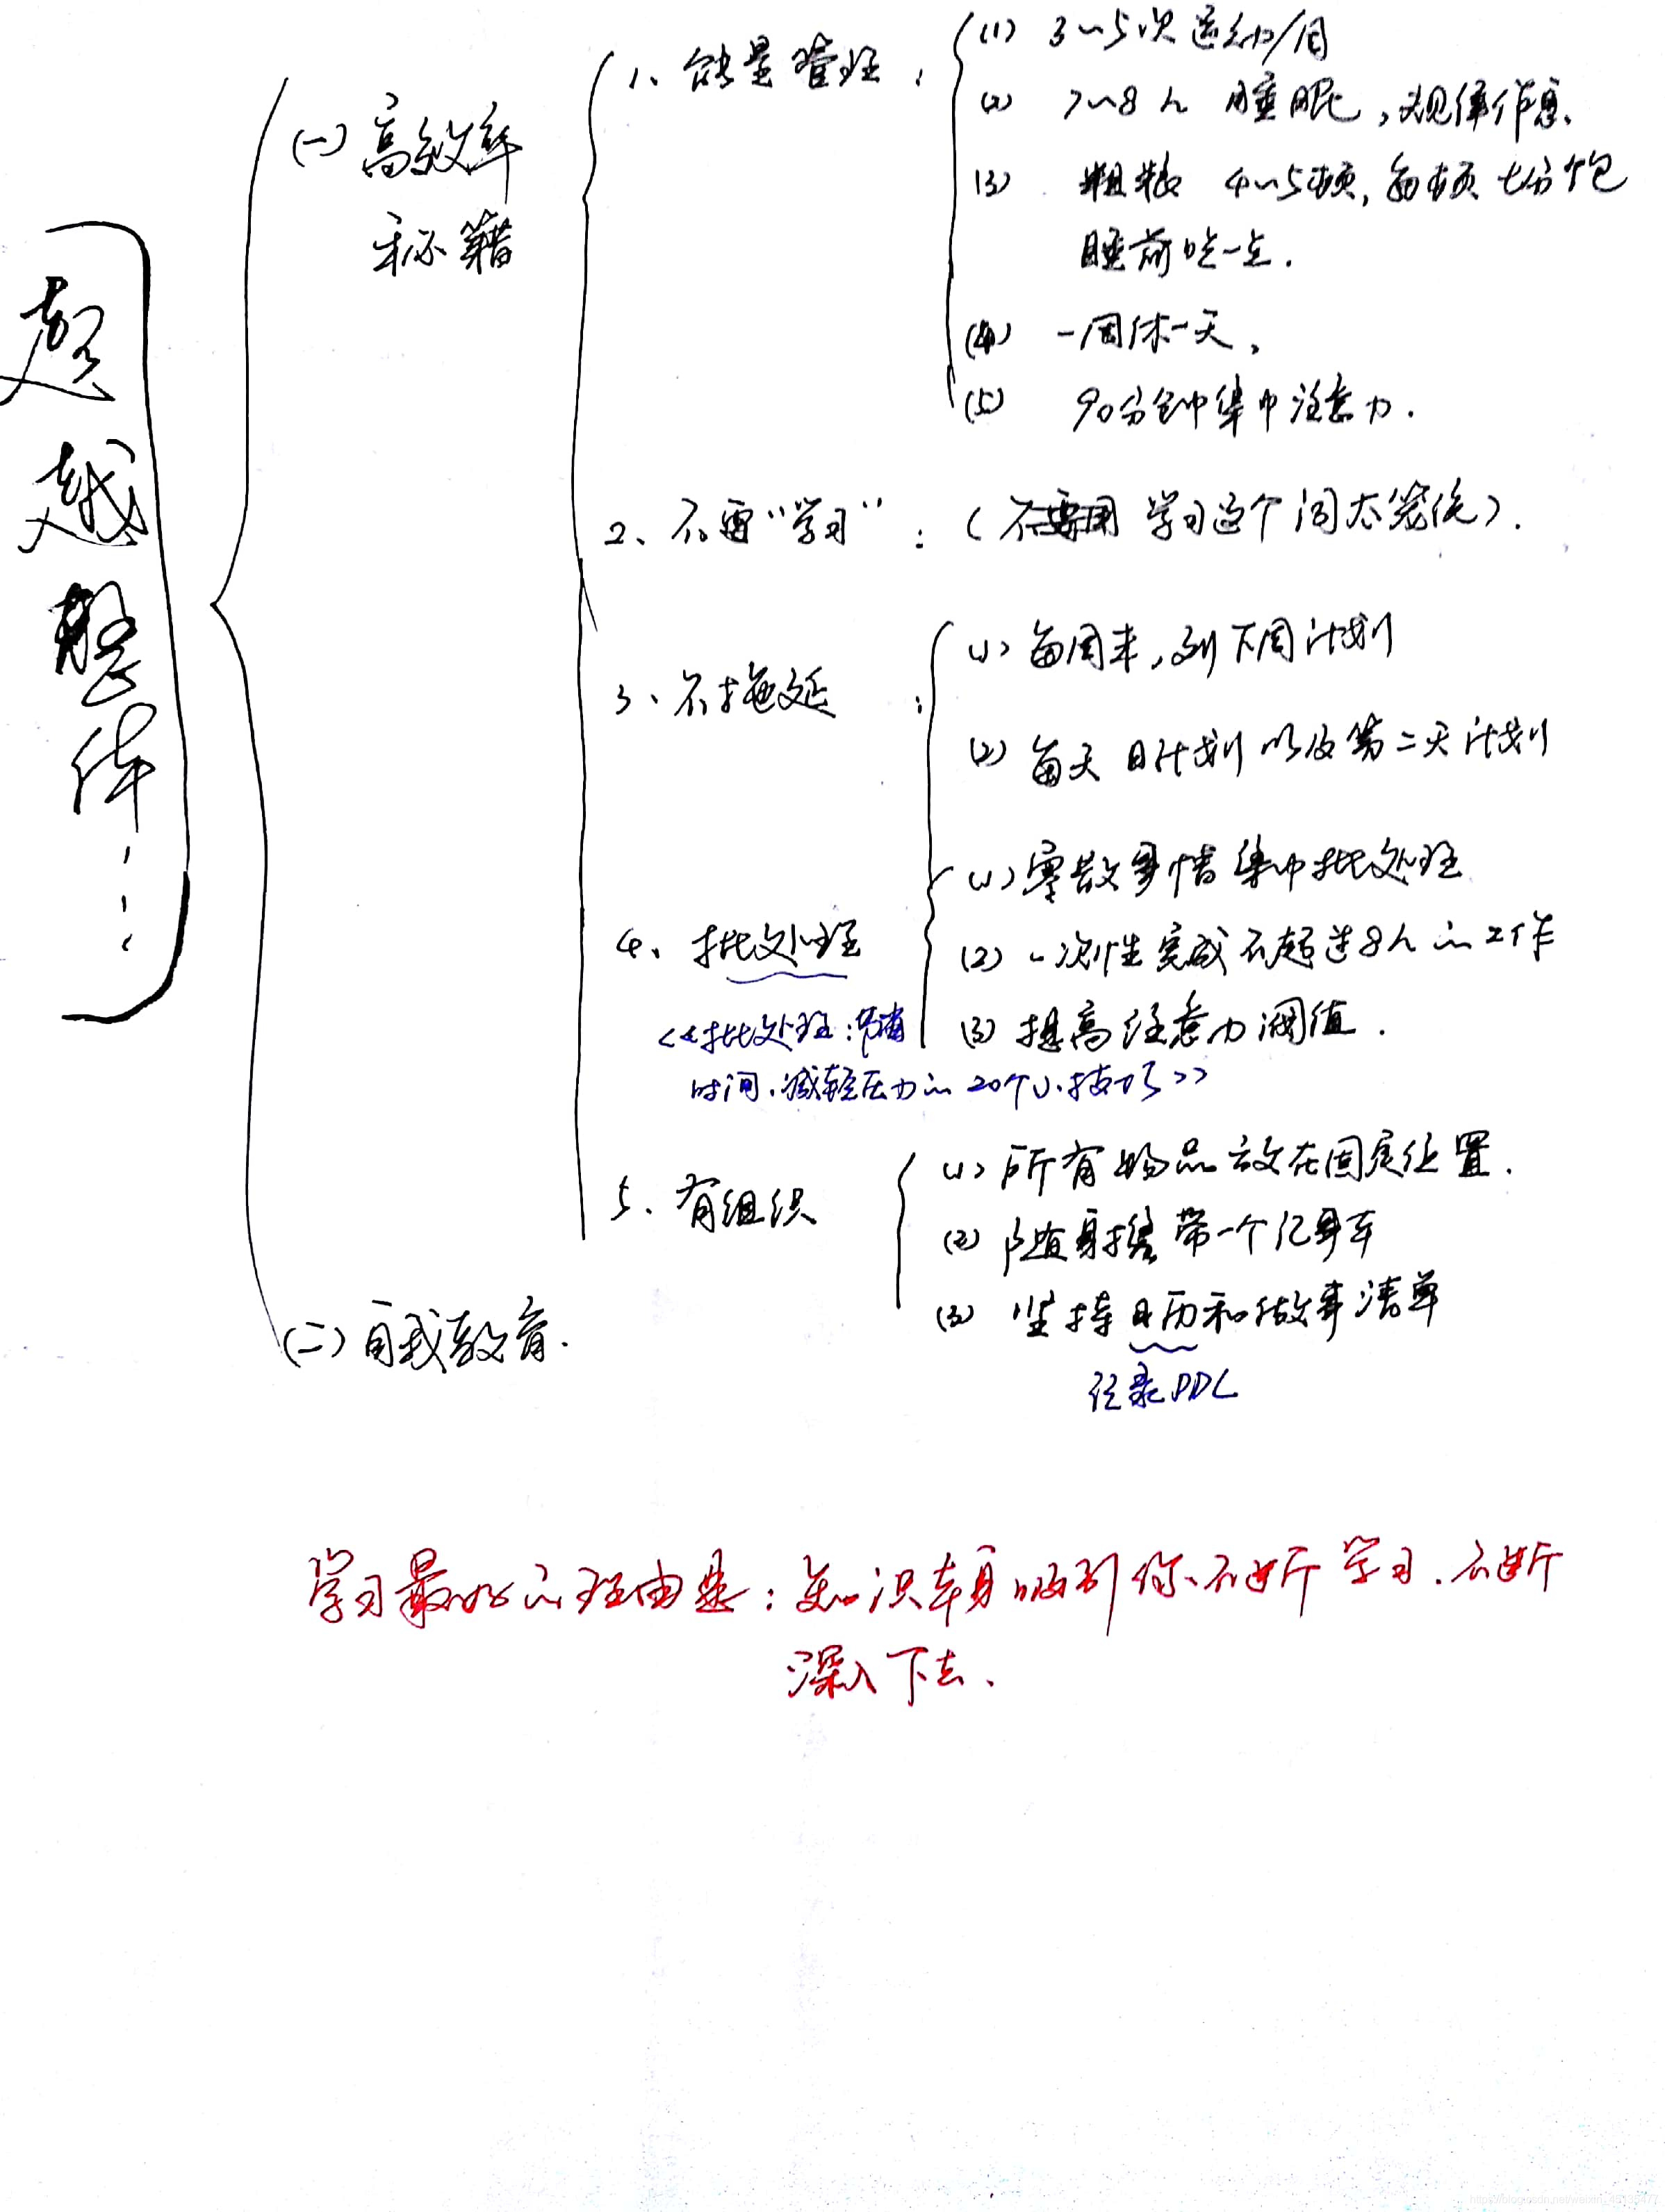 超越整体……
(一)高效率
秘籍
1、能量管理:
(1) 3~5次运动/周
(2) 7~8h 睡眠,规律作息.
(3) 粗粮 4~5顿,每顿七分饱
睡前吃一点.
(4) 一周休一天,
(5) 90分钟集中注意力.
2、不要“学习”:(不要用 学习这个词太笼统).
3、不拖延:
(1) 每周末,列下周计划
(2) 每天日计划以及第二天计划
4、批处理
(1) 零散事情集中批处理
(2) 一次性完成不超过8h的工作
(3) 提高注意力阈值.
<<批处理:节省
时间、减轻压力的20个小技巧>>
5、有组织
(1) 所有物品放在固定位置.
(2) 随身携带一个记事本
(3) 坚持日历和做事清单
记录DDL
(二)自我教育.
学习最好的理由是:知识本身吸引你不断学习.不断
深入下去、